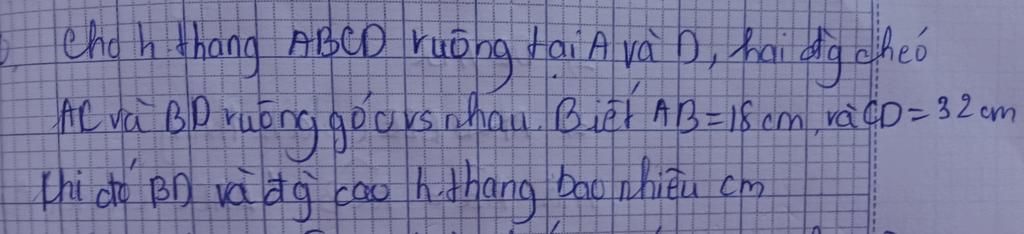 Cho h thang ABCD vuông tại A và D, hai đg chéo
AC và BD vuông góc vs nhau. Biết AB=18cm, và CD=32cm
thì độ BD và đg cao h.thang bao nhiêu cm